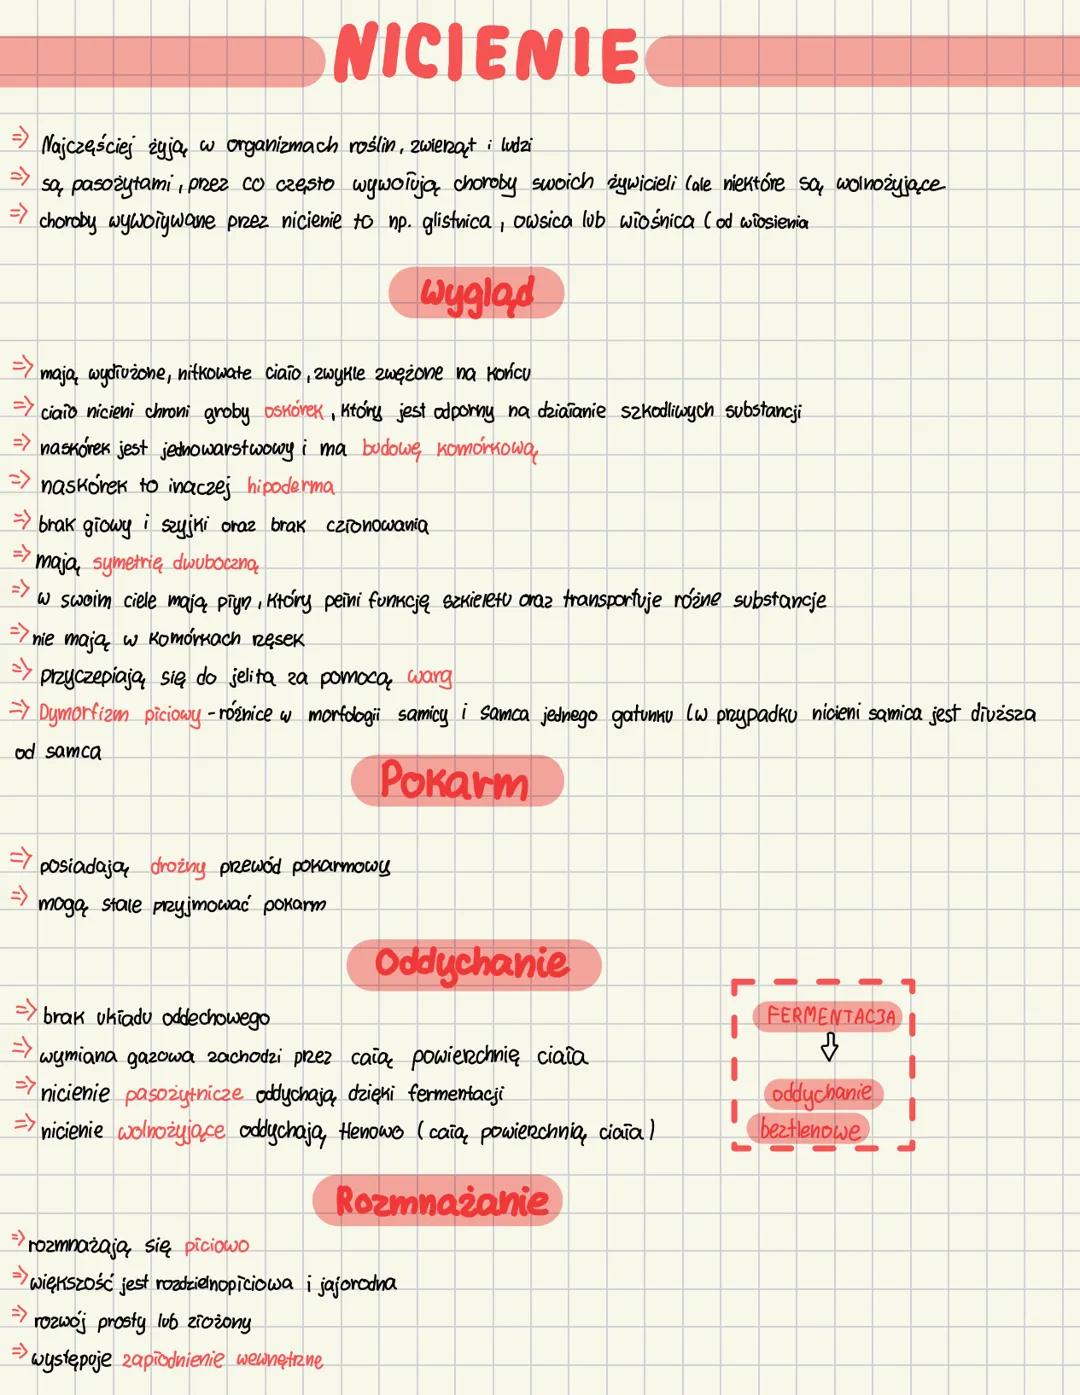 NICIENIE
=> Najczęściej żyją w organizmach roślin, zwierząt i ludzi
=> są pasożytami, przez co często wywołują choroby swoich żywicieli (ale niektóre są wolnożyjące
=> choroby wywoływane przez nicienie to np. glistnica, owsica lub włośnica (od włosienia
Wygląd
=> mają wydłużone, nitkowate ciało, zwykle zwężone na końcu
=> ciało nicieni chroni gruby oskórek, który jest odporny na działanie szkodliwych substancji
=> naskórek jest jednowarstwowy i ma budowę komórkową
=> naskórek to inaczej hipoderma
=> brak głowy i szyjki oraz brak członowania
=> mają symetrię dwuboczną
=> w swoim ciele mają płyn, który pełni funkcję szkieletu oraz transportuje różne substancje
=> nie mają w komórkach rzęsek
=> przyczepiają się do jelita za pomocą warg
=> Dymorfizm płciowy - różnice w morfologii samicy i samca jednego gatunku (w przypadku nicieni samica jest dłuższa
od samca
Pokarm
=> posiadają drożny przewód pokarmowy
=> mogą stale przyjmować pokarm
Oddychanie
=> brak układu oddechowego
=> wymiana gazowa zachodzi przez całą powierzchnię ciała
=> nicienie pasożytnicze oddychają dzięki fermentacji
=> nicienie wolnożyjące oddychają tlenowo (całą powierzchnią ciała)
FERMENTACJA
⇩
oddychanie
beztlenowe
Rozmnażanie
=> rozmnażają się płciowo
=> większość jest rozdzielnopłciowa i jajorodna
=> rozwój prosty lub złożony
=> występuje zapłodnienie wewnętrzne